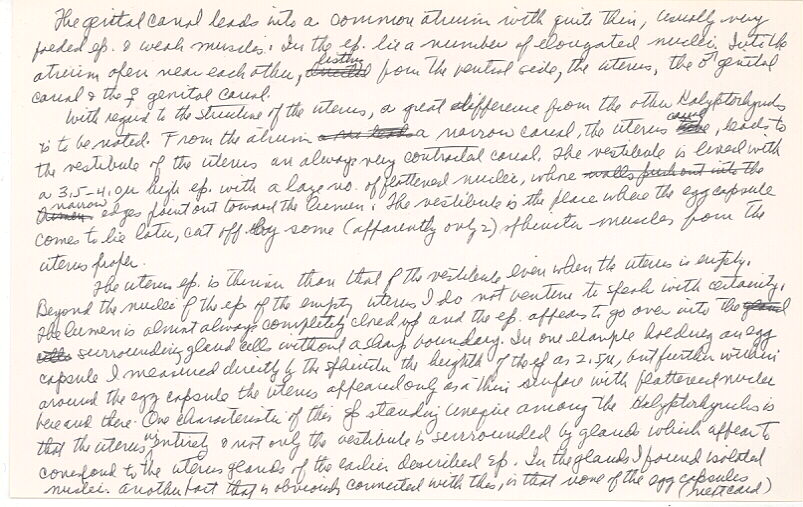 The genital canal leads into a common atrium with quite thin, usually very
folded ep. & weak muscles. In the ep. lie a number of elongated nuclei. Into the
atrium open near each other, listing from the ventral side, the uterus, the ♂ genital
canal & the ♀ genital canal.
With regard to the structure of the uterus, a great difference from the other Kalyptorhynchs
is to be noted. From the atrium a narrow canal, the uterus canal, leads to
the vestibule of the uterus an always very contracted canal. The vestibule is lined with
a 3,5-4.0µ high ep. with a large no. of flattened nuclei, where walls push out into the
narrow edges point out toward the lumen. The vestibule is the place where the egg capsule
comes to lie later, cut off by some (apparently only 2) sphincter muscles from the
uterus proper.
The uterus ep. is thinner than that of the vestibule even when the uterus is empty.
Beyond the nuclei of the ep. of the empty uterus I do not venture to speak with certainty.
The lumen is almost always completely closed up and the ep. appears to go over into the gland
cells surrounding gland cells without a sharp boundary. In one example holding an egg
capsule I measured directly by the sphincter the height of the ep as 2.5µ, but further within
around the egg capsule the uterus appeared only as a thin surface with flattened nuclei
here and there. One characteristic of this sp standing unique among the Kalyptorhynchs is
that the uterus entirely & not only the vestibule is surrounded by glands which appear to
correspond to the uterus glands of the earlier described sp. In the glands I found isolated
nuclei. another fact that is obviously connected with this, is that none of the egg capsules
(next card)